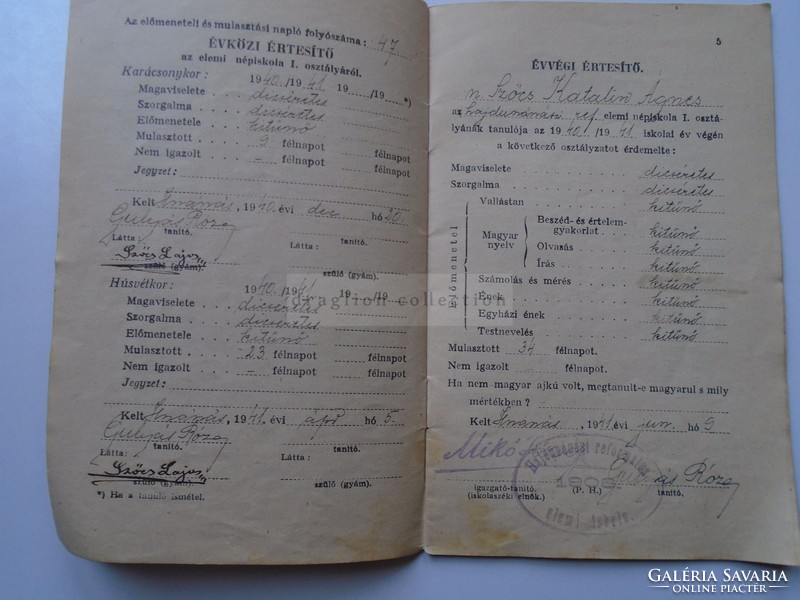 Az előmeneteli és mulasztási napló folyószáma: 47
ÉVKÖZI ÉRTESÍTŐ
az elemi népiskola I. osztályáról.
Karácsonykor: 1940/1941 19 /19 *)
Magaviselete dicséretes
Szorgalma dicséretes
Előmenetele kitünő
Mulasztott 9 félnapot félnapot
Nem igazolt - félnapot félnapot
Jegyzet:
Kelt Hnánás, 1940. évi dec. hó 20.
Gulyás Róza
tanító. tanító.
Látta: Látta:
Szőcs Lajos
szülő (gyám). szülő (gyám).
Húsvétkor: 1940/1941 19 /19
Magaviselete dicséretes
Szorgalma dicséretes
Előmenetele kitünő
Mulasztott 23 félnapot félnapot
Nem igazolt - félnapot félnapot
Jegyzet:
Kelt Hnánás, 1941. évi ápr. hó 5
Gulyás Róza
tanító. tanító.
Látta: Látta:
Szőcs Lajos
szülő (gyám). szülő (gyám).
*) Ha a tanuló ismétel.
5
ÉVVÉGI ÉRTESÍTŐ.
Szőcs Katalin Ágnes
az hajdunánási ref. elemi népiskola I. osztá-
lyának tanulója az 1940/1941. iskolai év végén
a következő osztályzatot érdemelte:
Magaviselete dicséretes
Szorgalma dicséretes
Előmenetel
Vallástan kitünő
Magyar nyelv
Beszéd- és értelem-
gyakorlat kitünő
Olvasás kitünő
Írás kitünő
Számolás és mérés kitünő
Ének kitünő
Egyházi ének kitünő
Testnevelés kitünő
Mulasztott 34 félnapot.
Nem igazolt félnapot.
Ha nem magyar ajkú volt, megtanult-e magyarul s mily
mértékben?
Kelt Hnánás, 1941. évi jun. hó 9
Mikó
Gulyás Róza
igazgató-tanító. (P. H.) tanító.
(iskolaszéki elnök).
református
1908
elemi iskola
draglion-collection
GALÉRIA SAVARIA
ONLINE PIACTÉR